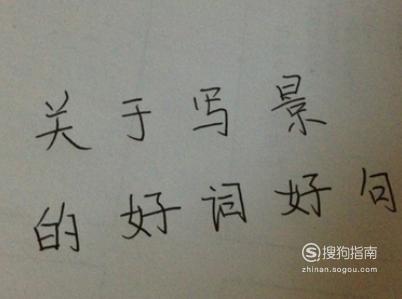 关于写景
的好词好句
搜狗指南
zhinan.sogou.com